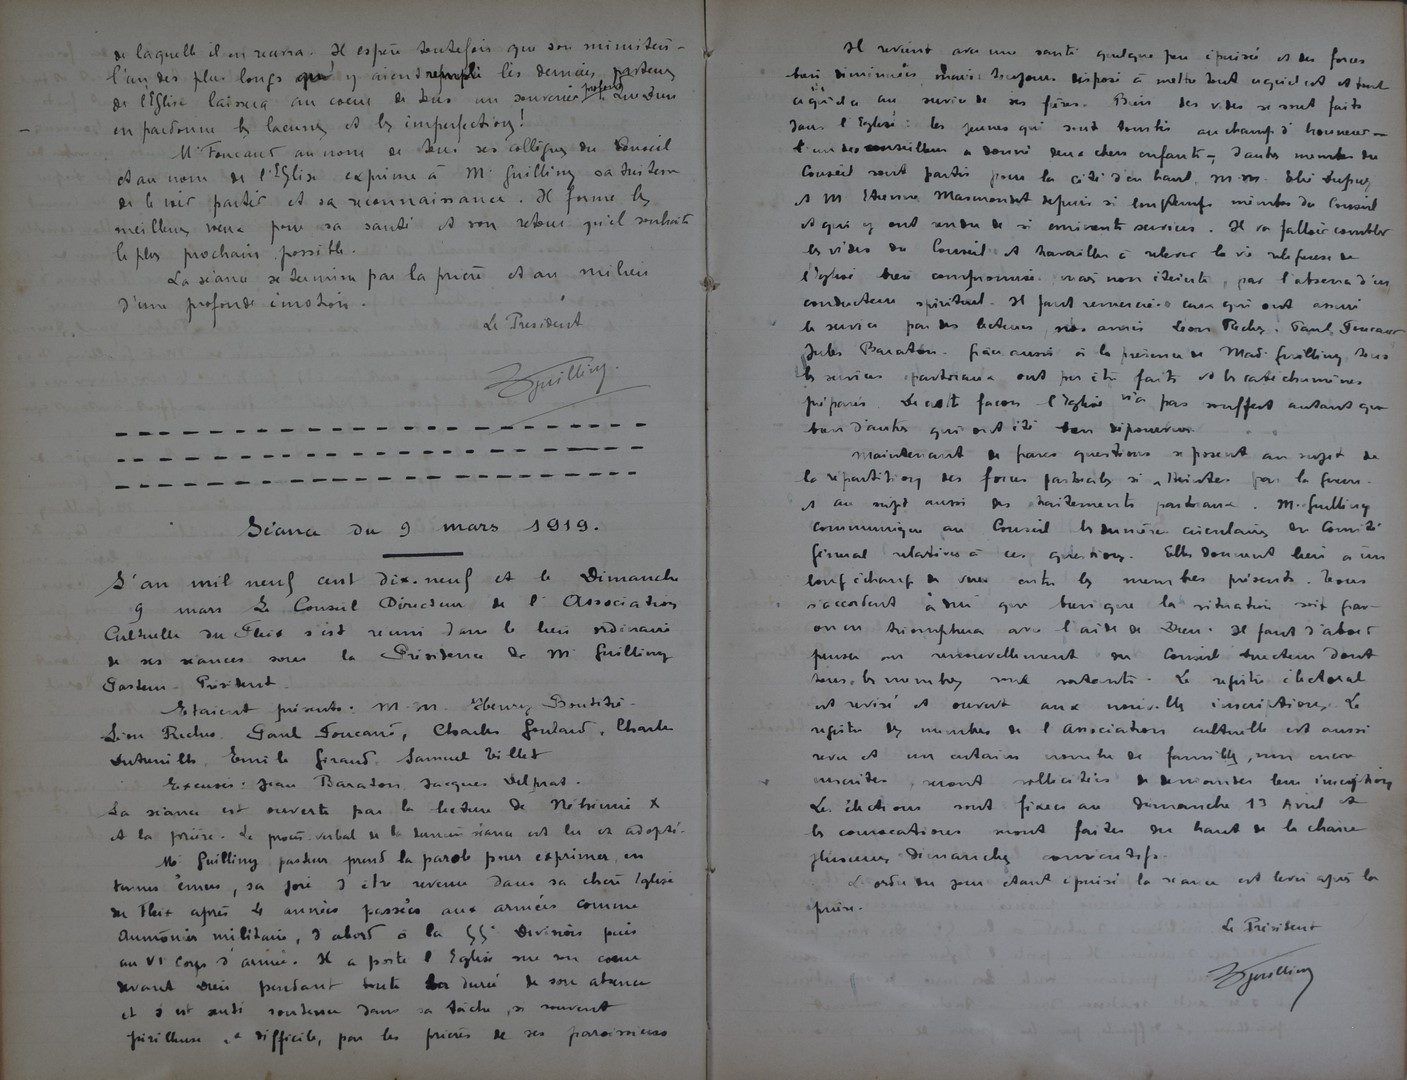 de laquelle il en reçevra. Il espère toutefois que son ministère -
l'un des plus longs qu'y aient rempli les derniers pasteurs
de l'Église laissera au coeur de tous un souvenir profond, que Dieu
en pardonne les lacunes et les imperfections!
Mr Foucaud au nom de tous ses collègues du Conseil
et au nom de l'Église exprime à Mr Guilling sa tristesse
de le voir partir et sa reconnaissance. Il forme les
meilleurs voeux pour sa santé et son retour qu'il souhaite
le plus prochain possible.
La séance se termine par la prière et au milieu
d'une profonde émotion.
Le Président
Guilling.
Séance du 9 mars 1919.
L'an mil neuf cent dix-neuf et le Dimanche
9 mars Le Conseil Directeur de l'Association
Cultuelle du Fleix s'est réuni dans le lieu ordinaire
de ses séances sous la Présidence de Mr Guilling
Pasteur-Président.
Etaient présents: M.M. Henry
Léon Riches, Paul Foucaud, Charles Goulard, Charles
Dutreuilh, Emile Giraud, Samuel Villet
Excusés: Jean Baraton Jacques Delprat.
La séance est ouverte par la lecture de Néhémie X
et la prière. Le procès-verbal de la dernière séance est lu et adopté.
Mr Guilling pasteur prend la parole pour exprimer, en
termes émus, sa joie d'être revenu dans sa chère Eglise
du Fleix après les années passées aux armées comme
Aumônier militaire, d'abord à la 55e Division puis
au VIe Corps d'armée. Il a porté l'Eglise sur son coeur
devant Dieu pendant toute la durée de son absence
et s'est senti soutenu dans sa tâche, si souvent
périlleuse et difficile, par les prières de ses paroissiens
Il revient avec une santé quelque peu épuisée et des forces
bien diminuées mais toujours disposé à mettre tout ce qu'il est et tout
ce qu'il a au service de ses frères. Bien des vides se sont faits
dans l'Eglise: les jeunes qui sont tombés au champ d'honneur -
l'un des conseillers a donné deux chers enfants -, d'autres membres du
Conseil sont partis pour la cité d'en haut, M.M. Elie Dupuy
et M Etienne Marmondet depuis si longtemps membres du Conseil
et qui y ont rendu de si éminents services. Il va falloir combler
les vides du Conseil et travailler à relever la vie religieuse de
l'église bien compromise mais non éteinte, par l'absence d'un
conducteur spirituel. Il faut remercier ceux qui ont assuré
le service par des lectures, nos amis Léon Riches, Paul Foucaud
Jules Baraton. Grâce aussi à la présence de Mad. Guilling tous
les services pastoraux ont pu être faits et les catéchumènes
préparés. De cette façon l'Eglise n'a pas souffert autant que
bien d'autres qui ont été dépourvues.
Maintenant de graves questions se posent au sujet de
la répartition des forces pastorales si atteintes par la guerre.
et au sujet aussi des traitements pastoraux. M. Guilling
communique au Conseil les dernières circulaires du Comité
général relatives à ces questions. Elles donnent lieu à un
long échange de vues entre les membres présents. Tous
s'accordent à dire que bien que la situation soit grave
on en triomphera avec l'aide de Dieu. Il faut d'abord
penser au renouvellement du Conseil directeur dont
tous les membres sont sortants. Le registre électoral
est revisé et ouvert aux nouvelles inscriptions. Le
registre des membres de l'Association cultuelle est aussi
revu et un certain nombre de familles, non encore
inscrites, seront sollicitées de demander leur inscription
Les élections sont fixées au dimanche 13 Avril et
les convocations seront faites du haut de la chaire
plusieurs dimanches consécutifs.
L'ordre du jour étant épuisé la séance est levée après la
prière.
Le Président
Guilling